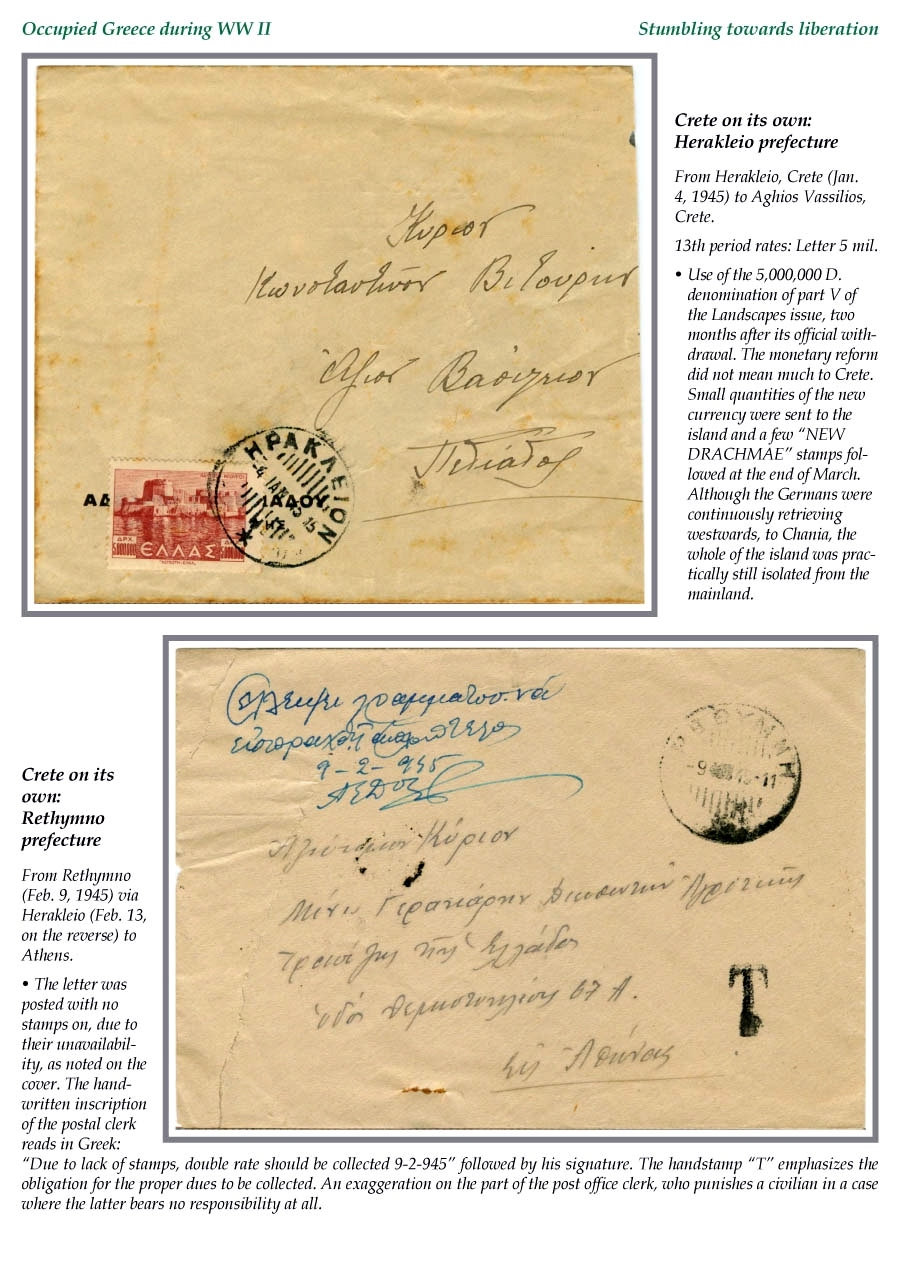 Occupied Greece during WW II
Stumbling towards liberation
Crete on its own:
Herakleio prefecture
From Herakleio, Crete (Jan.
4, 1945) to Aghios Vassilios,
Crete.
13th period rates: Letter 5 mil.
• Use of the 5,000,000 D.
denomination of part V of
the Landscapes issue, two
months after its official with-
drawal. The monetary reform
did not mean much to Crete.
Small quantities of the new
currency were sent to the
island and a few “NEW
DRACHMAE” stamps fol-
lowed at the end of March.
Although the Germans were
continuously retrieving
westwards, to Chania, the
whole of the island was prac-
tically still isolated from the
mainland.
Κύριον
Κωνσταντῖνον
Ἅγιον Βασίλειον
Πεδιάδος
ΗΡΑΚΛΕΙΟΝ
ΑΔ
ΛΑΔΟΥ
ΔΡΧ
5000000
ΕΛΛΑΣ
Ἐλλείψει γραμματοσ. νά
εἰσπραχθῇ τέλος
9-2-945
ΡΕΘΥΜΝΗ
Κύριον
Τραπέζης τῆς Ἑλλάδος
ὁδός Θεμιστοκλέους 67 Α.
Εἰς Ἀθήνας
T
Crete on its
own:
Rethymno
prefecture
From Rethymno
(Feb. 9, 1945) via
Herakleio (Feb. 13,
on the reverse) to
Athens.
• The letter was
posted with no
stamps on, due to
their unavailabil-
ity, as noted on the
cover. The hand-
written inscription
of the postal clerk
reads in Greek:
“Due to lack of stamps, double rate should be collected 9-2-945” followed by his signature. The handstamp “T” emphasizes the
obligation for the proper dues to be collected. An exaggeration on the part of the post office clerk, who punishes a civilian in a case
where the latter bears no responsibility at all.